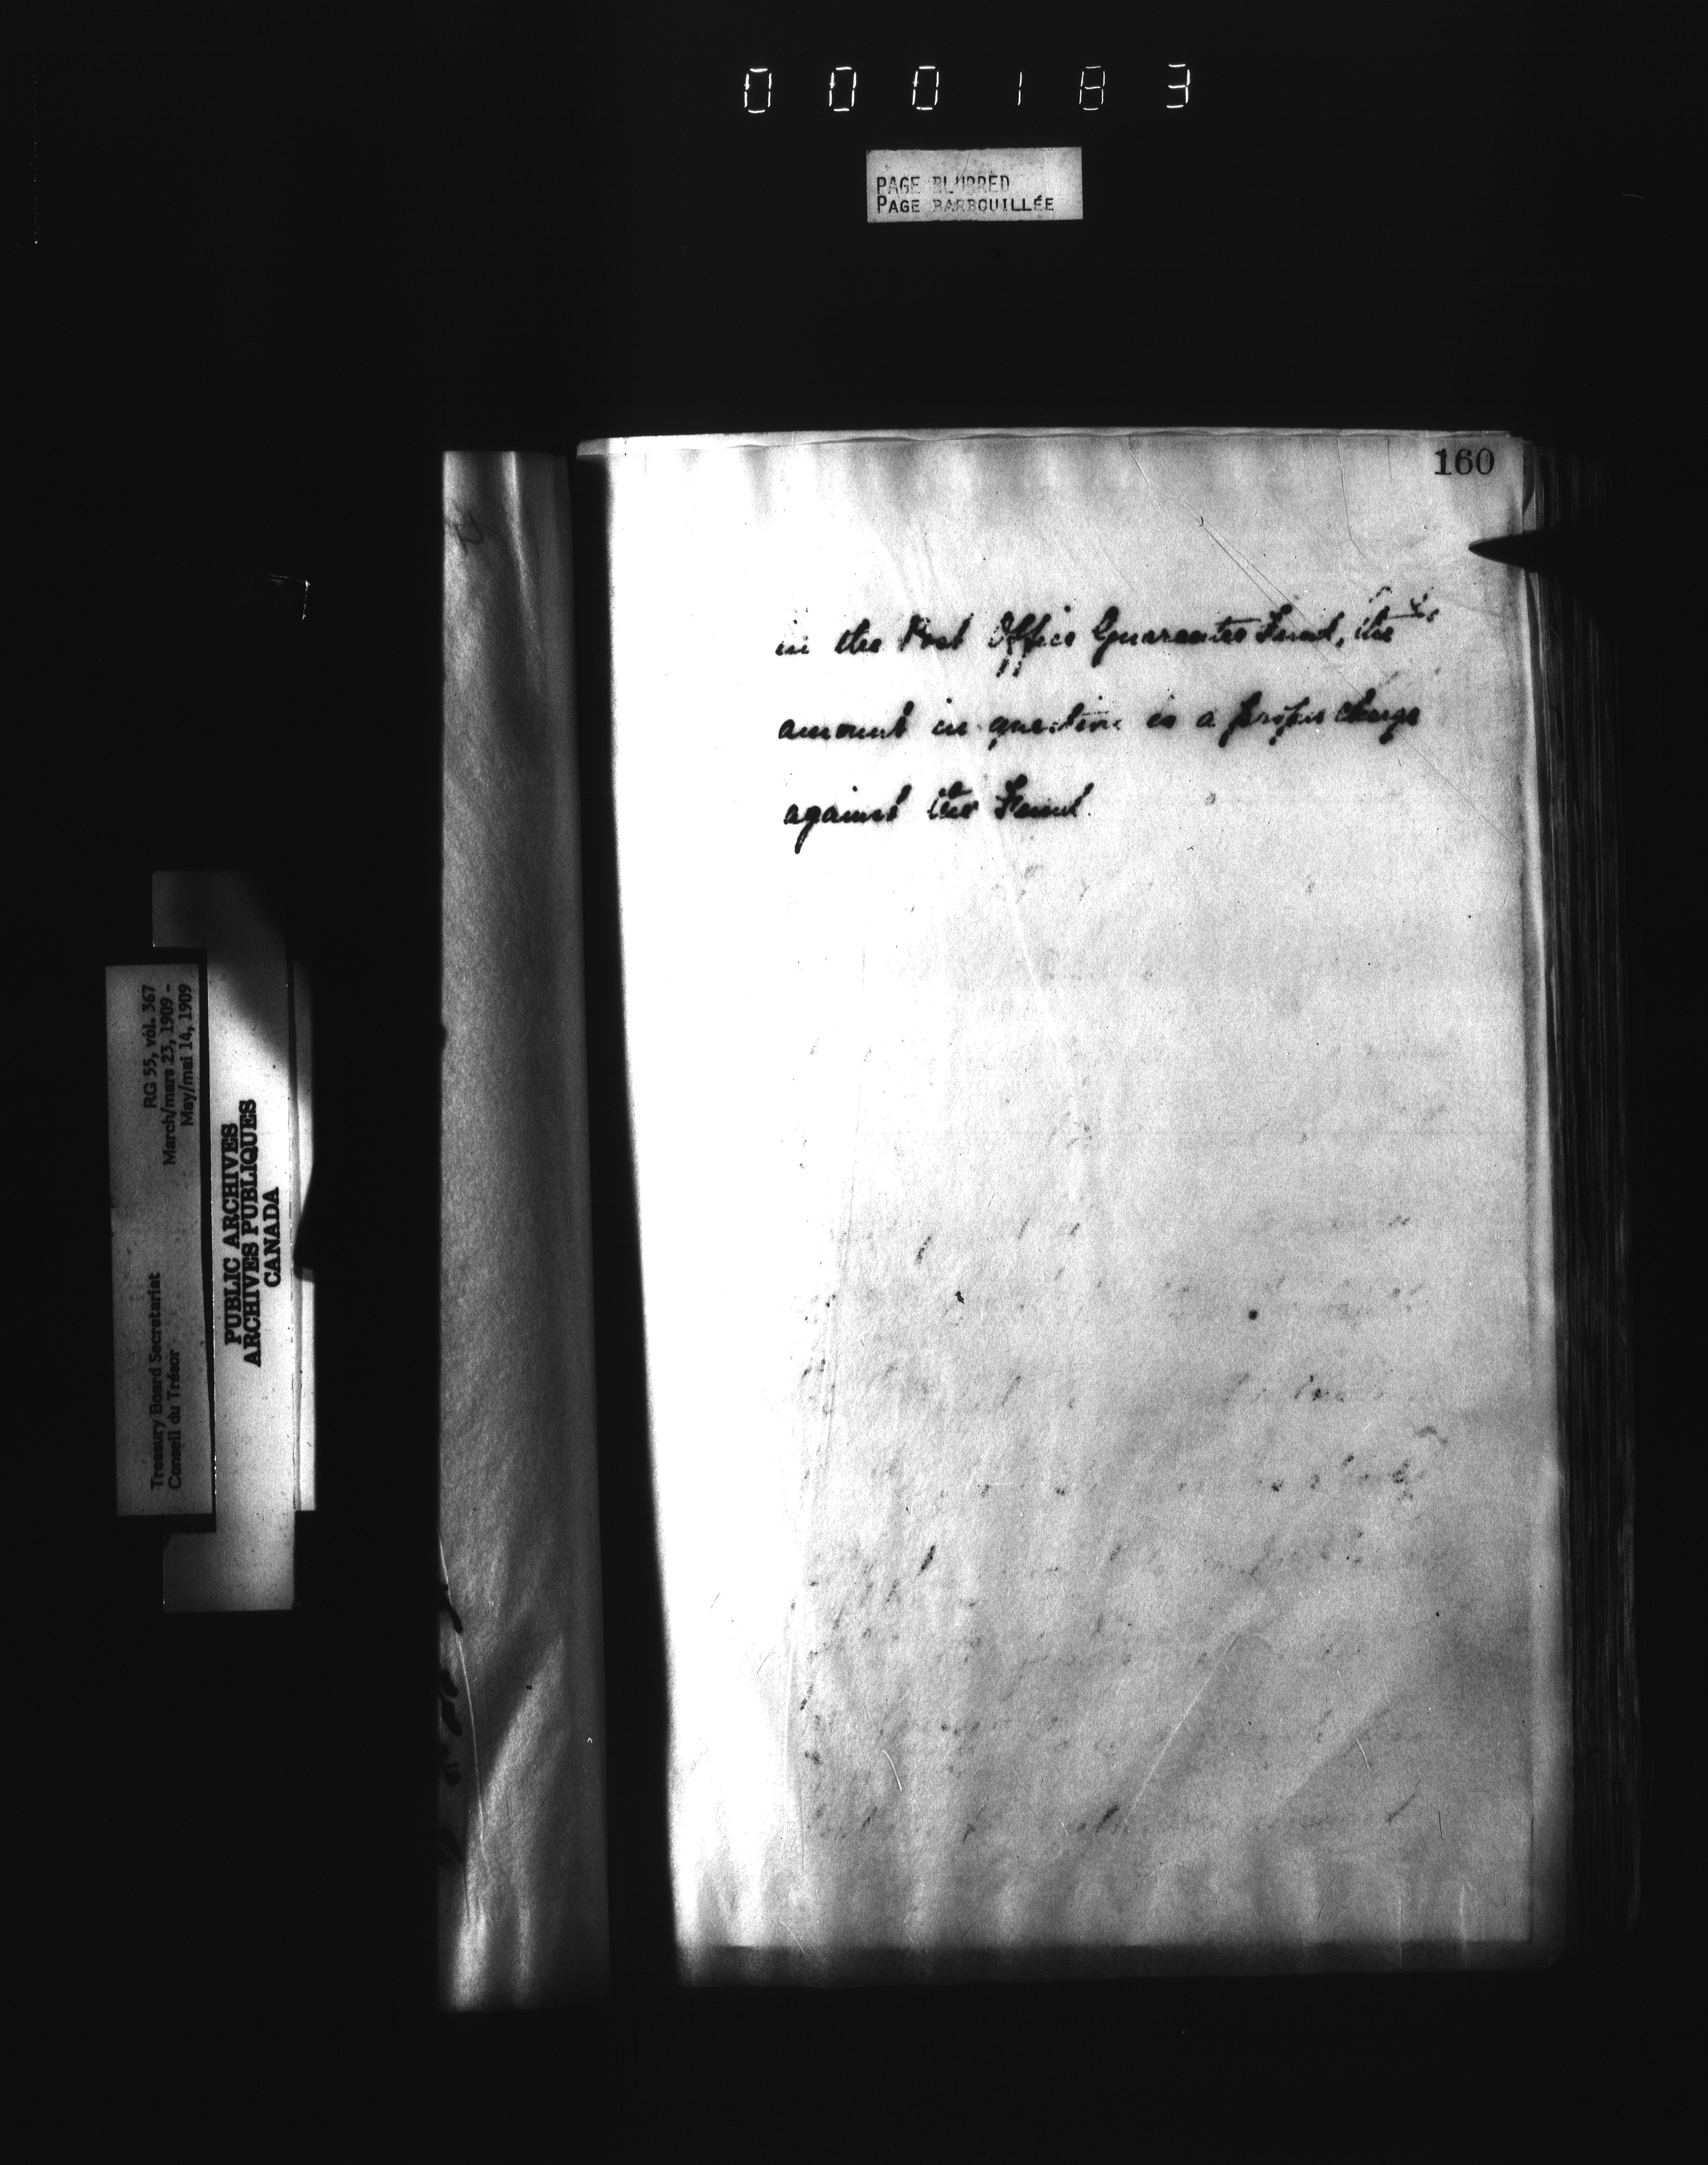 000183
PAGE BLURRED
PAGE BARBOUILLÉE
160
in the Post Office Guarantee Fund, the
amount in question is a proper charge
against the Fund.
RG 55, vol. 367
March/mars 23, 1909 -
May/mai 14, 1909
Treasury Board Secretariat
Conseil du Trésor
PUBLIC ARCHIVES
ARCHIVES PUBLIQUES
CANADA